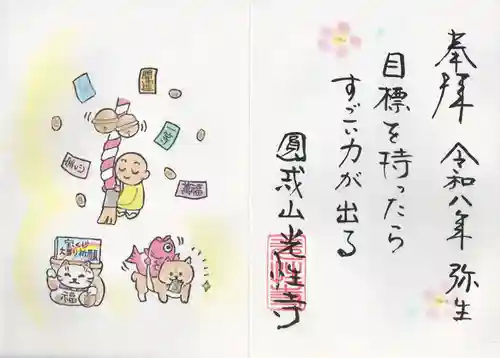 奉拝 令和八年 弥生
目標を持ったら
すごい力が出る
圓戒山 光性寺
宝くじ
大当り祈願
福